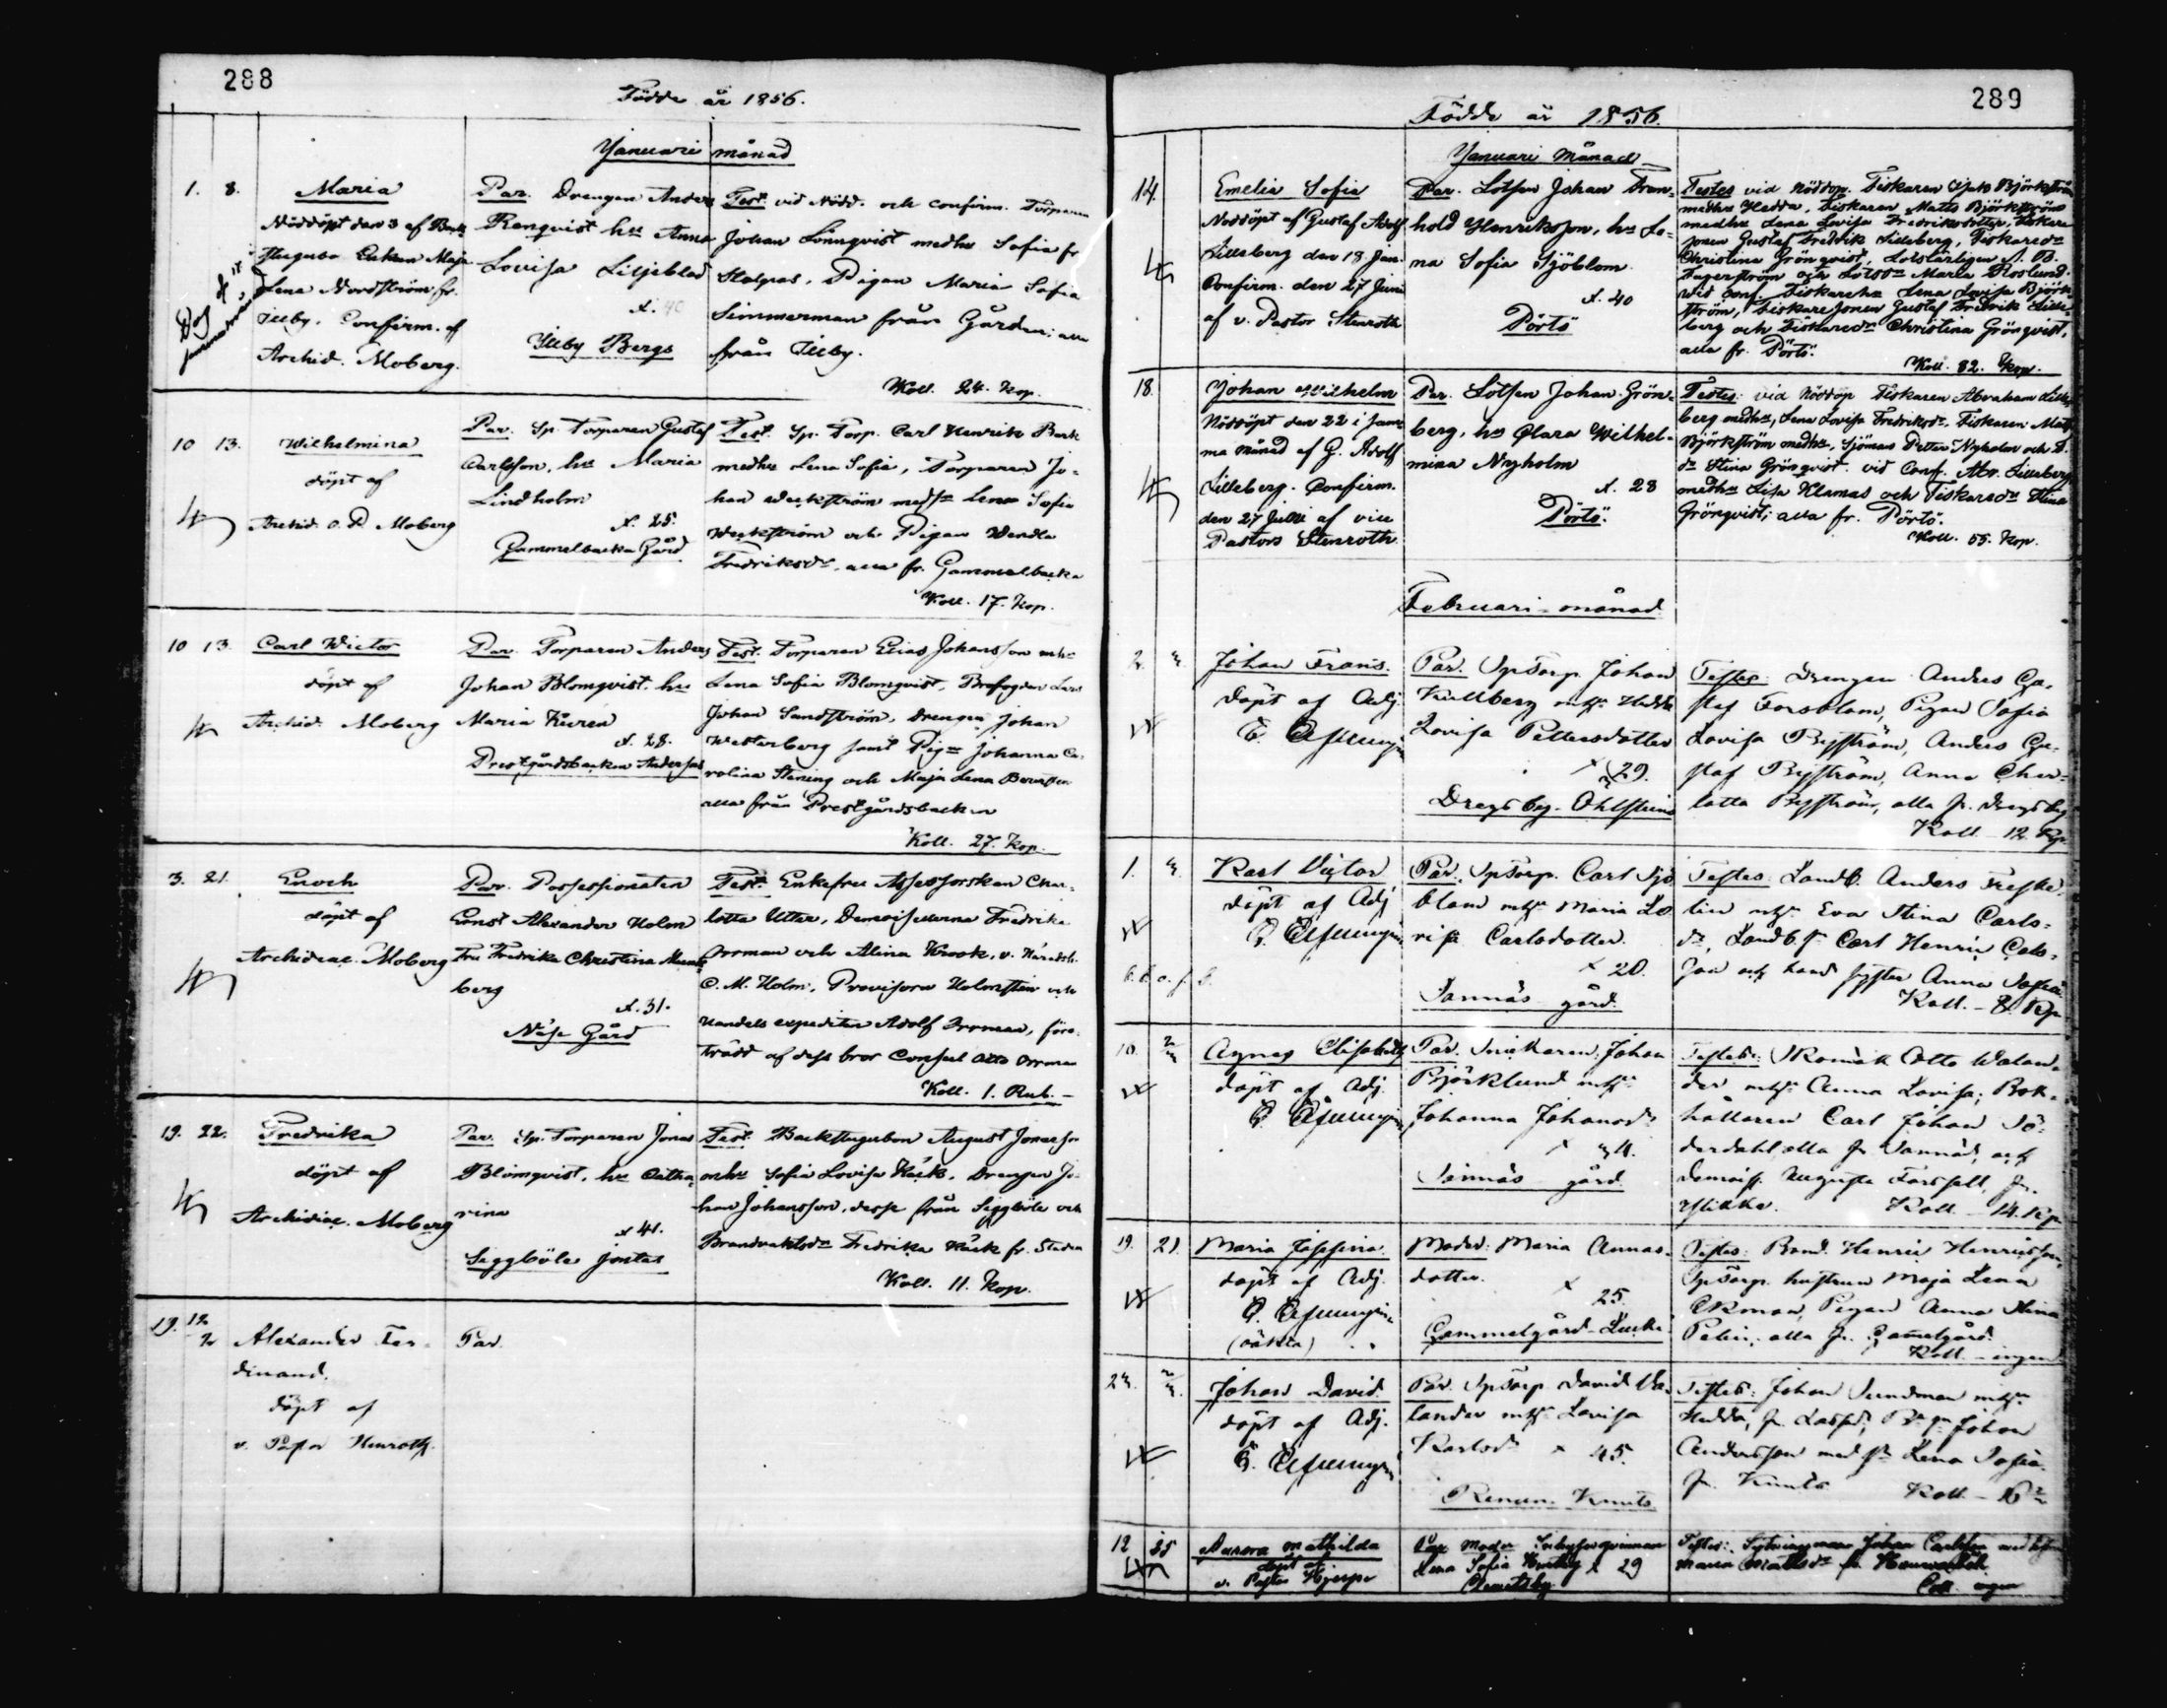 288
Födde år 1856.
Januari månad
1. 8.
Maria
Nöddöpt den 3 af Back
stugubo Enkan Maja
Lena Nordström fr.
Illby. Confirm. af
Archid. Moberg.
Par. Drengen Anders
Renqvist hu Anna
Lovisa Liljeblad
x. 40
Illby Bergs
Test. vid Nödd. och confirm. Torparen
Johan Lönnqvist medhu Sofia fr
Stolpas, Pigan Maria Sofia
Simmerman från Gården; alla
från Illby.
Koll. 24. kop.
10 13.
Wilhelmina
döpt af
Archid. O. R Moberg
Par. Sp. Torparen Gustaf
Carlsson, hu Maria
Lindholm
x. 25.
Gammelbacka Gård
Test. Sp. Torp. Carl Henrik Back
medhu Lena Sofia, Torparen Jo-
han Weckström medhu Lena Sofia
Weckström och Pigan Wendla
Fredriksdr, alla fr. Gammelbacka
Koll. 17. Kop.
10 13.
Carl Victor
döpt af
Archid. Moberg
Par. Torparen Anders
Johan Blomqvist. hu
Maria Kurén
x. 28.
Prestgårdsbacken Andersas
Test. Torparen Elias Johansson mhu
Lena Sofia Blomqvist, Brofogden Lars
Johan Sundström, drengen Johan
Westerberg samt Pigne Johanna Ca-
rolina Stening och Maja Lena
alla från Prestgårdsbacken
Koll. 27. Kop.
3. 21.
Enoch
döpt af
Archidiac. Moberg
Par. Possessionaten
Ernst Alexander Holm
Fru Fredrika Christina Munck
berg
x. 31.
Näse Gård
Test. Enkefru Assessorskan Char-
lotta Utter, Demoisellerna Fredrika
Orrman och Alina Krook, v. Häradsh.
C. M. Holm, Provisorn Holmsten och
Handels expediten Adolf Orrman, före-
trädd af dess bror Consul Otto Orrman
Koll. 1. Rub. -
19. 22.
Fredrika
döpt af
Archidiac. Moberg
Par. Sp. Torparen Jonas
Blomqvist, hu Catha-
rina
x 41.
Seggböle Jontas
Test. Backstugubon August Jonasson
mhu Sofia Lovisa Käck, Drengen Jo-
han Johansson, desse från Seggböle och
Brandvaktsdr Fredrika Käck fr. Staden
Koll. 11. Kop.
19. 12/2
Alexander Fer-
dinand.
döpt af
v. Pastor Stenroth.
Par.
289
Födde år 1856.
Januari Månad
14.
Emelia Sofia
Nöddöpt af Gustaf Adolf
Lilleberg den 18 Jan.
Confirm. den 27 Juni
af v. Pastor Stenroth
Par. Lotsen Johan Fron-
hold Henriksson, hu Le-
na Sofia Sjöblom
x. 40
Pörtö
Testes vid nöddop. Fiskaren Björkström
medhu Hedda, Fiskaren Matts Björkström
medhu Lena Lovisa Fredriksdotter, Fiskare
sonen Gustaf Fredrik Lilleberg, Fiskaredr
Christina Grönqvist, Lotslärligen
Fagerström och Lotsdr Maria Roslund.
vid conf. Fiskarehu Lena Lovisa Björk-
ström, Fiskare sonen Gustaf Fredrik Lille-
berg och Fiskaredr Christina Grönqvist,
alla fr. Pörtö.
Koll. 82. Kop.
18.
Johan Wilhelm
Nöddöpt den 22 i Sam-
ma Månad af G. Adolf
Lilleberg. Confirm.
den 27 Julii af vice
Pastorn Stenroth
Par. Lotsen Johan Grön-
berg, hu Clara Wilhel-
mina Nyholm
x. 28
Pörtö.
Testes: vid Nöddop Fiskaren Abraham Lille-
berg medhu, Lena Lovisa Fredriksdr, Fiskaren Matts
Björkström medhu, Sjöman Petter Nyholm och
dr Stina Grönqvist. vid Conf. Abr. Lilleberg
medhu Lisa Klamas och Fiskaredr Stina
Grönqvist; alla fr. Pörtö.
Koll. 55. Kop.
Februari månad
Johan Frans.
döpt af Adj.
Par. SpTorp. Johan
Kullberg mhu Hedda
Lovisa Pettersdotter
x 29.
Drägsby Ohlstens
Testes: Drengen Anders Gu-
staf Forsblom, Pigan Sofia
Lovisa Byström, Anders Gu-
staf Byström, Anna Char-
lotta Byström, alla fr. Drägsby
Koll. 12 Kp
1.
Karl Victor
döpt af Adj
Par. SpTorp. Carl Sjö
blom mhu Maria Lo
visa Carlsdotter.
x 20.
Sannäs gård.
Testes: Landb. Anders
mhu Eva Stina Carls-
dr, Landb. Carl Henric Carls-
son och hans syster Anna Sofia.
Koll. - 8. Kp
10.
Agnes Elisabeth
döpt af Adj.
Par. Snickaren Johan
Björklund mhu
Johanna Johansdr
Sannäs gård
Testes: Skomak Otto Walan-
der mhu Anna Lovisa; Bok-
hållaren Carl Johan Sö-
derdahl alla fr Sannäs, och
Demois. Augusta Forssell, fr.
Koll. - 14. Kp
19. 21.
Maria Josefina.
döpt af Adj.
(oäkta)
Moder: Maria Annas-
dotter.
x 25.
Gammelgård-Lucka
Testes: Bond. Henric Henricsson,
SpTorp. hustrun Maja Lena
Ekman, Pigan Anna Stina
alla fr. Gamelgård.
Koll. - ingen
Johan David
döpt af Adj.
Par. SpTorp David Va-
lander mhu Lovisa
Karlsdr x 45.
Renum Knuts
Testes: Johan Sundman mhu
Hedda, fr. Johan
Andersson med hu Lena Sofia.
fr. Knuts Koll. - 16
12 25
Aurora Mathilda
döpt af
v. Pastor
Moder Inhyseqvinnan
Lena Sofia x 29
Clemetsby
Testes: Johan Carlsson med hu
Maria Mattsdr fr.
Coll. ingen